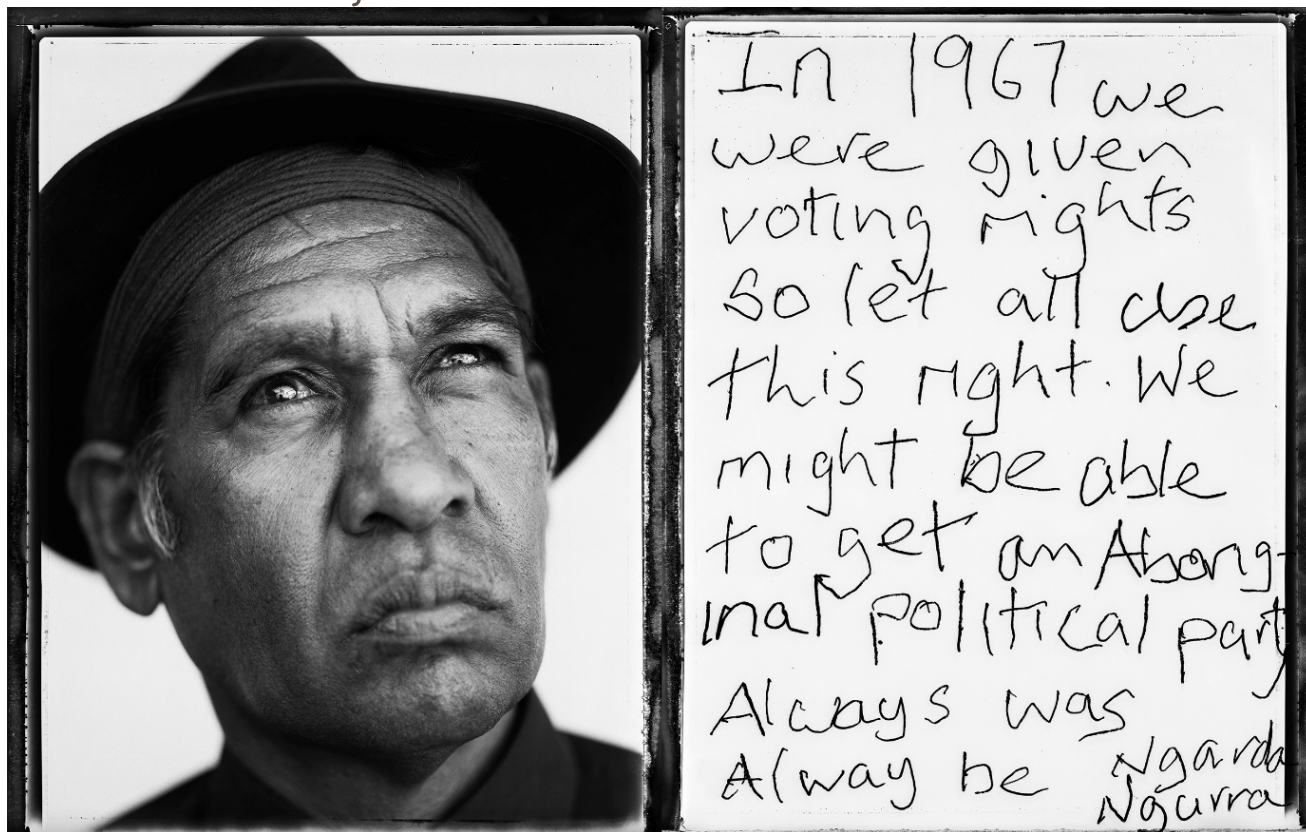 In 1967 we
were given
voting rights
so let all use
this right. We
might be able
to get an Aborig-
inal political party
Always was
Alway be Ngarda
Ngurra